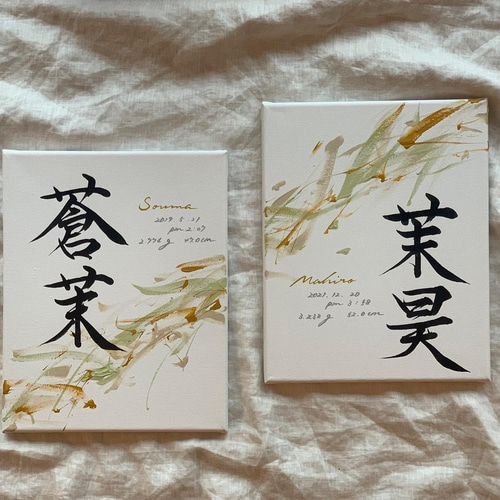 蒼茉
Souma
2019.5.21
pm.2:07
2.776g 47.0cm
茉昊
Mahiro
2021.12.20
pm 3:58
3.250g 50.0cm